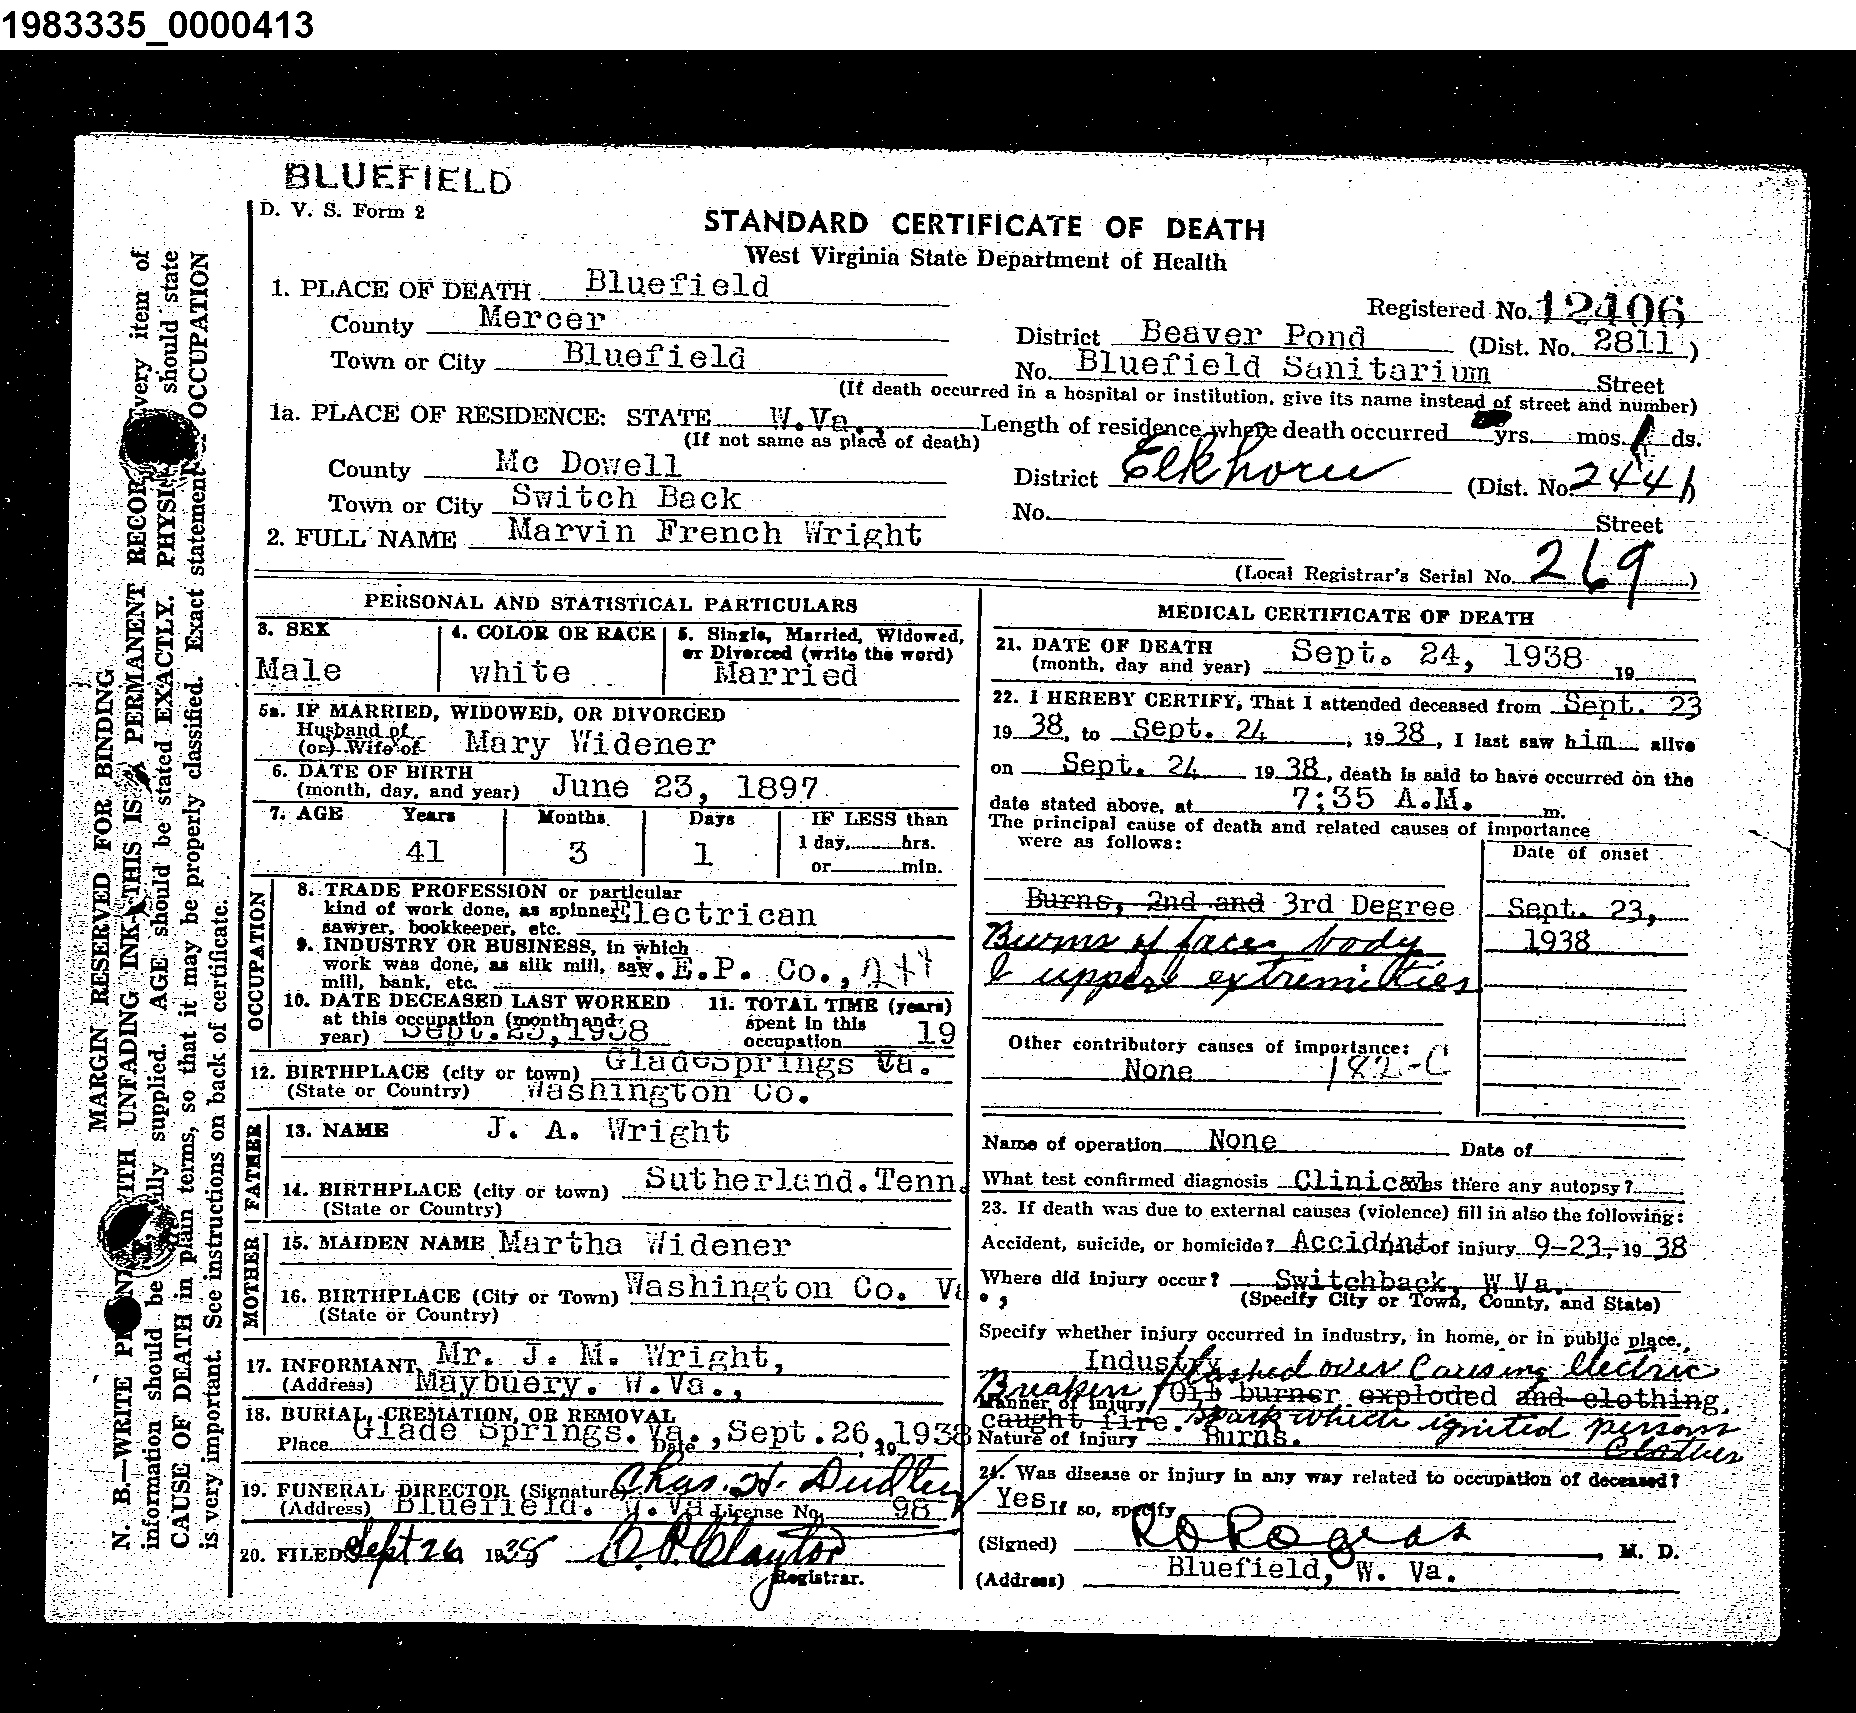 1983335_0000413
BLUEFIELD
D. V. S. Form 2
STANDARD CERTIFICATE OF DEATH
West Virginia State Department of Health
1. PLACE OF DEATH Bluefield
Registered No. 12406
County Mercer
District Beaver Pond (Dist. No. 2811)
Town or City Bluefield
No. Bluefield Sanitarium Street
(If death occurred in a hospital or institution, give its name instead of street and number)
1a. PLACE OF RESIDENCE: STATE W.Va.,
Length of residence where death occurred yrs. mos. 1 ds.
(If not same as place of death)
County Mc Dowell
District Elkhorn (Dist. No. 2441)
Town or City Switch Back
No. Street
2. FULL NAME Marvin French Wright
(Local Registrar's Serial No. 269)
PERSONAL AND STATISTICAL PARTICULARS
3. SEX
Male
4. COLOR OR RACE
white
5. Single, Married, Widowed,
or Divorced (write the word)
Married
5a. IF MARRIED, WIDOWED, OR DIVORCED
Husband of
(or) Wife of Mary Widener
6. DATE OF BIRTH
(month, day, and year) June 23, 1897
7. AGE Years Months Days IF LESS than
41 3 1 1 day, hrs.
or min.
OCCUPATION
8. TRADE PROFESSION or particular
kind of work done, as spinner, Electrican
sawyer, bookkeeper, etc.
9. INDUSTRY OR BUSINESS, in which
work was done, as silk mill, saw .E.P. Co.,
mill, bank, etc.
10. DATE DECEASED LAST WORKED
at this occupation (month and
year) Sept.23,1938
11. TOTAL TIME (years)
spent in this
occupation 19
12. BIRTHPLACE (city or town) GladeSprings Va.
(State or Country) Washington Co.
FATHER
13. NAME J. A. Wright
14. BIRTHPLACE (city or town) Sutherland.Tenn.
(State or Country)
MOTHER
15. MAIDEN NAME Martha Widener
16. BIRTHPLACE (City or Town) Washington Co. Va.,
(State or Country)
17. INFORMANT Mr. J. M. Wright,
(Address) Maybuery. W.Va.,
18. BURIAL, CREMATION, OR REMOVAL
Place Glade Springs. Va., Date Sept.26, 19 1938
19. FUNERAL DIRECTOR (Signature) Chas. H. Dudley
(Address) Bluefield. W.Va License No. 98
20. FILED Sept 26 1938 Claytor
Registrar.
MEDICAL CERTIFICATE OF DEATH
21. DATE OF DEATH
(month, day and year) Sept. 24, 1938 19
22. I HEREBY CERTIFY, That I attended deceased from Sept. 23
19 38, to Sept. 24, 19 38, I last saw him alive
on Sept. 24 19 38, death is said to have occurred on the
date stated above, at 7:35 A.M. m.
The principal cause of death and related causes of importance
were as follows:
Date of onset
Burns, 2nd and 3rd Degree Sept. 23,
Burns of face body 1938
& upper extremities
Other contributory causes of importance:
None 182-C
Name of operation None Date of
What test confirmed diagnosis Clinical Was there any autopsy?
23. If death was due to external causes (violence) fill in also the following:
Accident, suicide, or homicide? Accident Date of injury 9-23- 19 38
Where did injury occur? Switchback, W Va.
(Specify City or Town, County, and State)
Specify whether injury occurred in industry, in home, or in public place.
Industry
Breaker flashed over causing electric
Manner of Injury Oil burner exploded and clothing
caught fire. spark which ignited persons
clothes
Nature of injury Burns.
24. Was disease or injury in any way related to occupation of deceased?
Yes If so, specify
(Signed) Rogers, M. D.
(Address) Bluefield, W. Va.
MARGIN RESERVED FOR BINDING
N. B.—WRITE WITH UNFADING INK—THIS IS A PERMANENT RECORD. Every item of
information should be supplied. AGE should be stated EXACTLY. should state
CAUSE OF DEATH in plain terms, so that it may be properly classified. Exact statement OCCUPATION
is very important. See instructions on back of certificate.